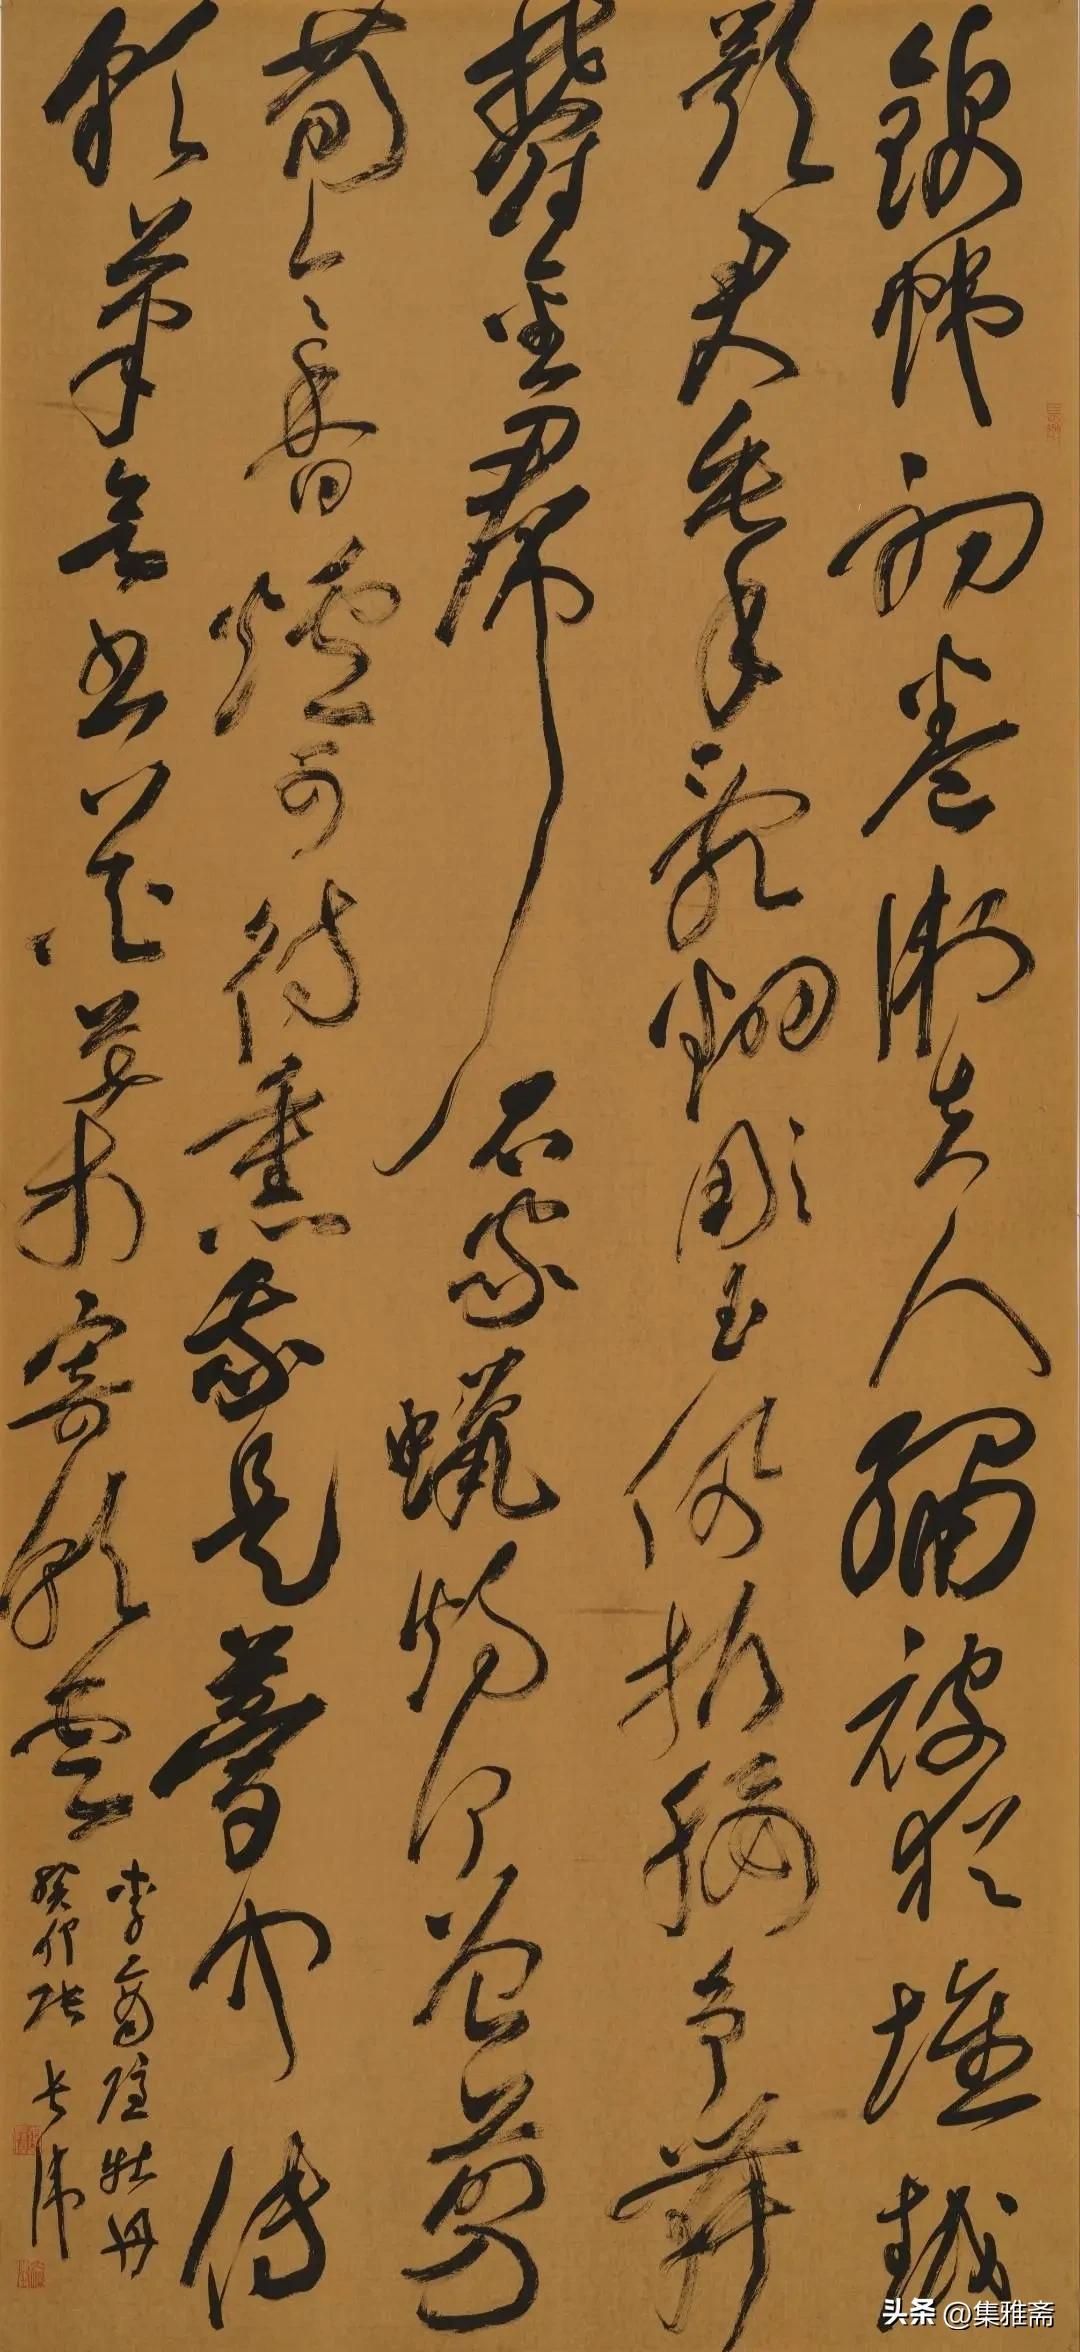 錦幃初卷衛夫人繡被猶堆越
鄂君垂手亂翻彫玉佩折腰爭舞
鬱金帬石家蠟燭何曾剪
荀令香爐可待熏我是夢中傳
彩筆欲書花葉寄朝雲
李商隱牡丹
癸卯張長
头条 @集雅斋